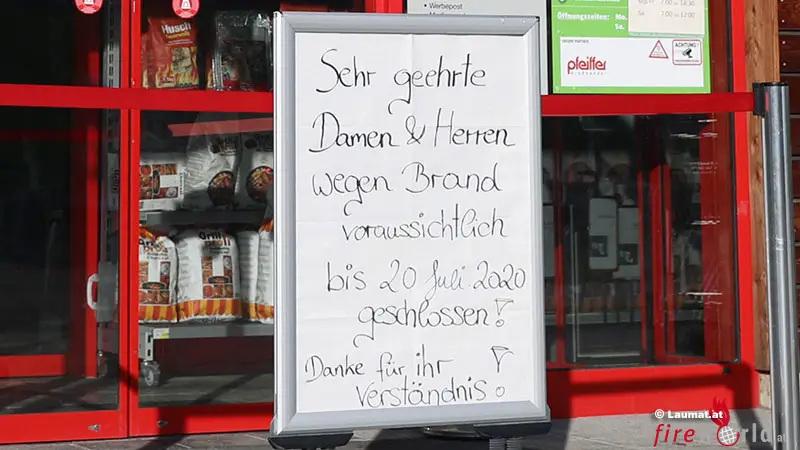 Werbepost
Husch
Öffnungszeiten: Mo.
Sa.
pfeiffer
ACHTUNG
Sehr geehrte
Damen & Herren
wegen Brand
voraussichtlich
bis 20 Juli 2020
geschlossen!
Danke für ihr
Verständnis!
Grill
profi
Grill
profi
© Laumat.at
fireworld.at